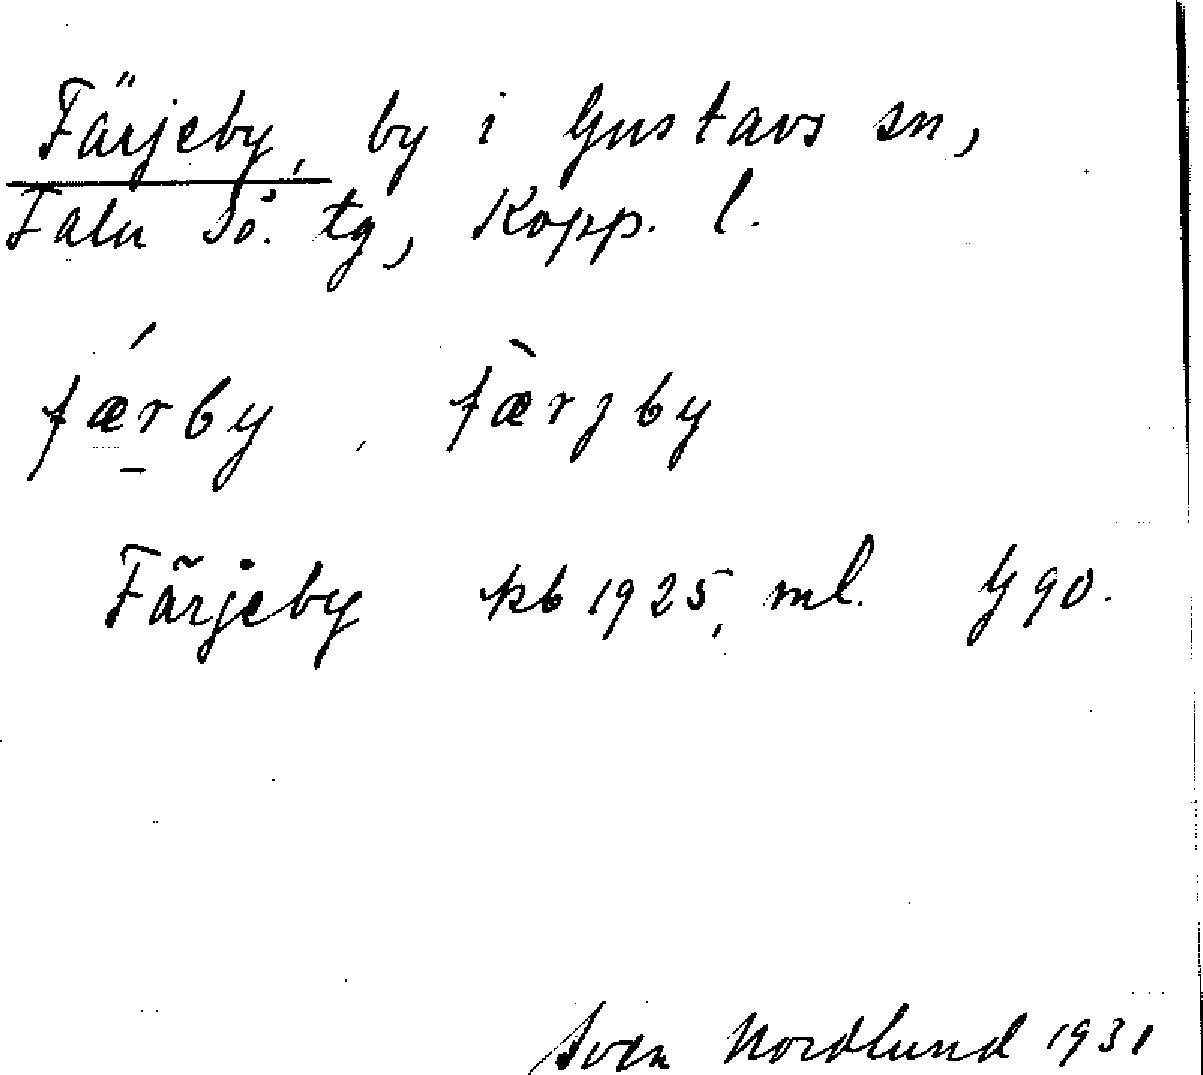 Färjeby, by i Gustavs sn,
Falu Sö. tg, Kopp. l.
fǽrby, fæ̀rjby
Färjeby kb 1925, ml. G 90.
Sven Nordlund 1931